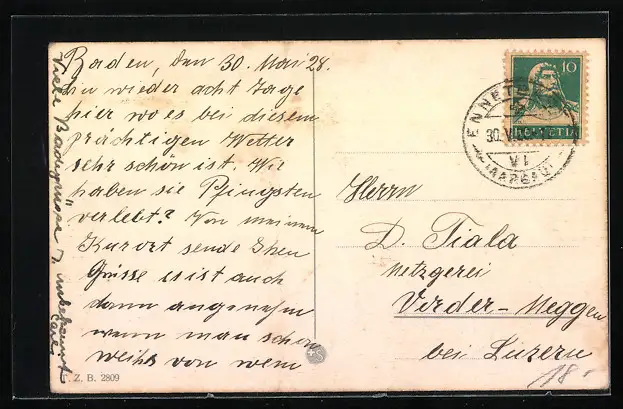 Baden, den 30. Mai 28.
bin wieder acht Tage
hier wo es bei diesem
prächtigen Wetter
sehr schön ist. Wie
haben sie Pfingsten
verlebt? Von meinem
Kurort sende Ihen
Grüsse es ist auch
dann angenehm
wenn man schon
weihs von wem
viele Badegrüsse
unbekannt
T. Z. B. 2809
10
HELVETIA
ENNET
30.V
VI
(AARGAU)
Herrn
D. Tiala
Metzgerei
Vorder-Meggen
bei Luzern
18.-